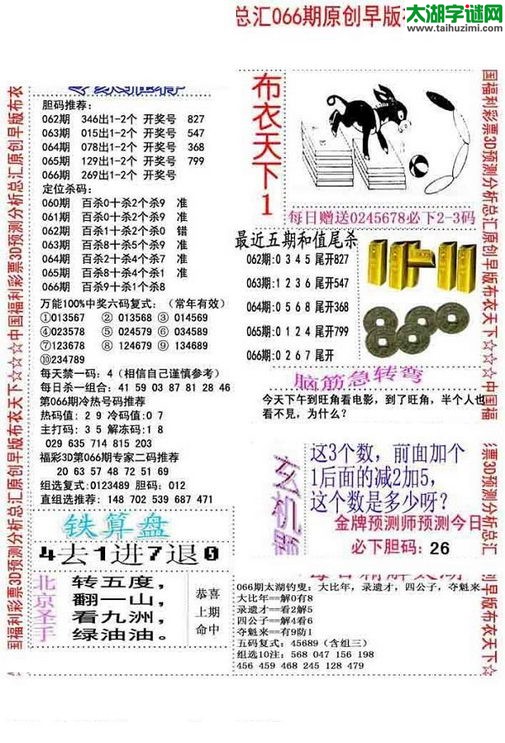 总汇066期原创早版布
太湖字谜网
www.taihuzimi.com
国福利彩票3D预测分析总汇原创早版布衣天下☆☆☆中国福利彩票3D预测分析总汇原创早版布衣
胆码推荐：
062期 346出1-2个 开奖号 827
063期 015出1-2个 开奖号 547
064期 078出1-2个 开奖号 368
065期 129出1-2个 开奖号 799
066期 269出1-2个 开奖号
定位杀码：
060期 百杀0十杀2个杀9 准
061期 百杀0十杀1个杀2 准
062期 百杀1十杀0个杀0 错
063期 百杀7十杀8个杀9 准
064期 百杀2十杀4个杀7 准
065期 百杀8十杀4个杀1 准
066期 百杀9十杀1个杀8
万能100%中奖六码复式：（常年有效）
①013567 ② 013568 ③ 014569
④023578 ⑤ 024579 ⑥ 034589
⑦123678 ⑧ 124679 ⑨ 134689
⑩234789
每天禁一码：4（相信自己谨慎参考）
每日杀一组合：41 59 03 87 81 28 46
第066期冷热号码推荐
热码值：2 9 冷码值：0 7
主打码：3 5 解冻码：1 8
029 635 714 815 203
福彩3D第066期专家二码推荐
20 63 57 48 72 51 69
组选复式：0123489 胆码：012
直组选推荐：148 702 539 687 471
铁算盘
4去1进7退0
北京圣手
转五度，
翻一山，
看九洲，
绿油油。
恭喜
上期
命中
布衣天下1
每日赠送0245678必下2-3码
最近五期和值尾杀
062期:0 3 4 5 尾开827
063期:1 2 3 6 尾开547
064期:0 5 6 8 尾开368
065期:0 1 2 4 尾开799
066期:0 2 6 7 尾开
脑筋急转弯
今天下午到旺角看电影，到了旺角，半个人也
看不见，为什么？
玄机
这3个数，前面加个
1后面的减2加5，
这个数是多少呀？
金牌预测师预测今日
必下胆码：26
066期太湖钓叟：大比年，录遗才，四公子，夺魁来
大比年==解0有8
录遗才==看2解5
四公子==解4看6
夺魁来==有9防1
五码复式：45689（含组三）
组选10注：568 047 156 198
456 459 468 245 128 479